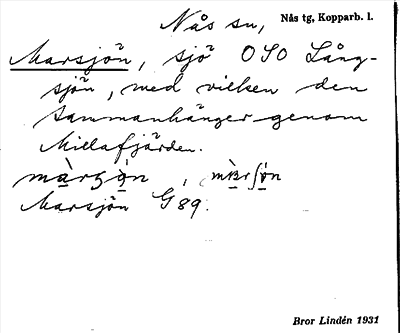 Nås sn, Nås tg, Kopparb. l.
Marsjön, sjö OSO Lång-
sjön, med vilken den
sammanhänger genom
Millafjärden.
Marsjön G89.
Bror Lindén 1931